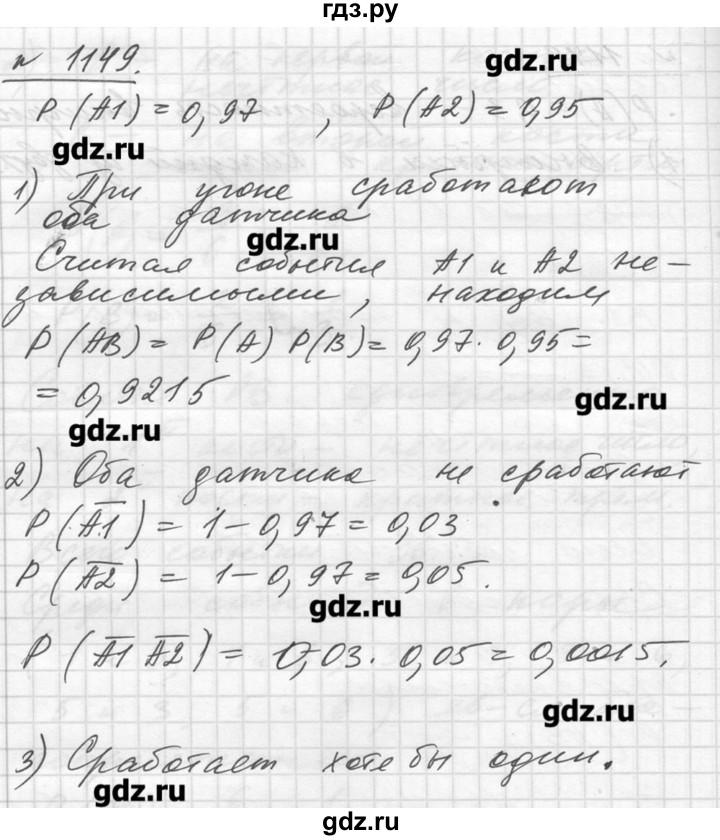 гдз.ру
№ 1149.
gdz.ru
P(A1) = 0,97 , P(A2) = 0,95
gdz.ru
1) При угоне сработают
оба датчика
gdz.ru
Считая события A1 и A2 не-
зависимыми, находим
P(AB) = P(A) P(B) = 0,97 · 0,95 =
= 0,9215
gdz.ru
gdz.ru
2) Оба датчика не сработают
P(A̅1̅) = 1 - 0,97 = 0,03
P(A̅2̅) = 1 - 0,97 = 0,05.
gdz.ru
P(A̅1̅ A̅2̅) = 0,03 · 0,05 = 0,0015.
gdz.ru
3) Сработает хотя бы один.
gdz.ru
гдз.ру